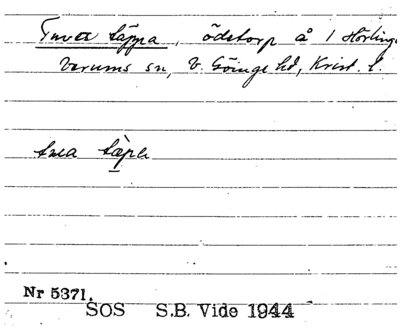 Tuva täppa, ödetorp å 1 Hörlinge
Verums sn, V. Göinge hd, Krist. l.
tua täpa
Nr 5371.
SOS S.B. Vide 1944